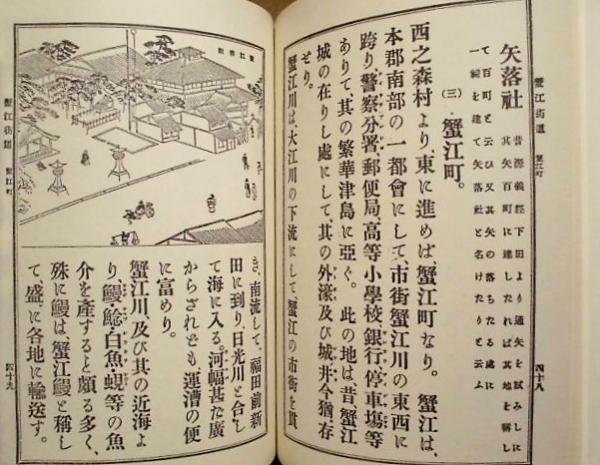 蟹江街道 蟹江町
四十八
矢落社
昔源義經下田より遠矢を試みしに
其矢百町に達したれば其地を稱し
て百町と云ひ又其矢の落ちたる處に
一祠を建て矢落社と名けたりと云ふ
(三)蟹江町。
西之森村より、東に進めば、蟹江町なり。蟹江は、
本郡南部の一都會にして、市街蟹江川の東西に
跨り、警察分署、郵便局、高等小學校、銀行、停車塲等
ありて、其の繁華津島に亞ぐ。此の地は、昔蟹江
城の在りし處にして、其の外濠及び城井今猶存
せり。
蟹江川は、大江川の下流にして、蟹江の市街を貫
き、南流して、福田前新
田に到り、日光川と合し
て海に入る。河幅甚だ廣
からざれども、運漕の便
に富めり。
蟹江川、及び其の近海よ
り、鰻・鯰・白魚・蜆等の魚
介を產すると頗る多く、
殊に鰻は蟹江鰻と稱し
て、盛に各地に輸送す。
蟹江街道 蟹江町
四十九